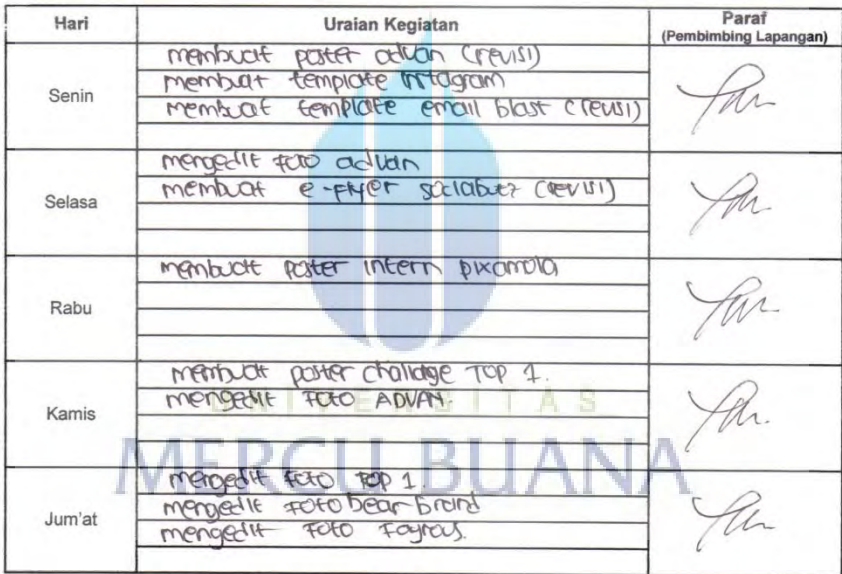 Hari Uraian Kegiatan Paraf
(Pembimbing Lapangan)
Senin
membuat poster advan (revisi)
membuat template instagram
membuat template email blast (revisi)
Selasa
mengedit foto advan
membuat e-flyer sociabuzz (revisi)
Rabu
membuat poster intern pixamola
Kamis
membuat poster challdge TOP 1.
mengedit FOTO ADVAN.
UNIVERSITAS
MERCU BUANA
Jum'at
mengedit foto TOP 1.
mengedit foto bear brand
mengedit foto Fayrous.